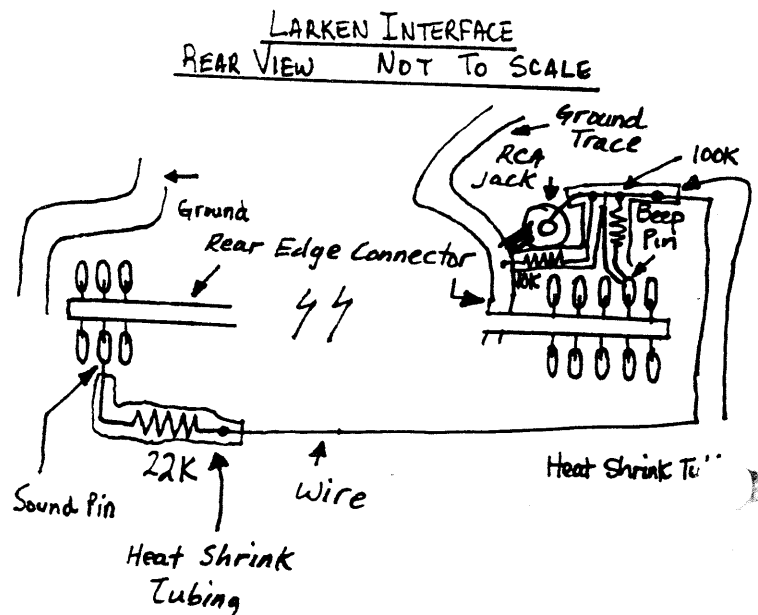 LARKEN INTERFACE
REAR VIEW NOT TO SCALE
Ground
Trace
RCA
Jack
100K
Ground
Rear Edge Connector
Beep
Pin
10K
22K
Sound Pin
Wire
Heat Shrink
Heat Shrink
Tubing